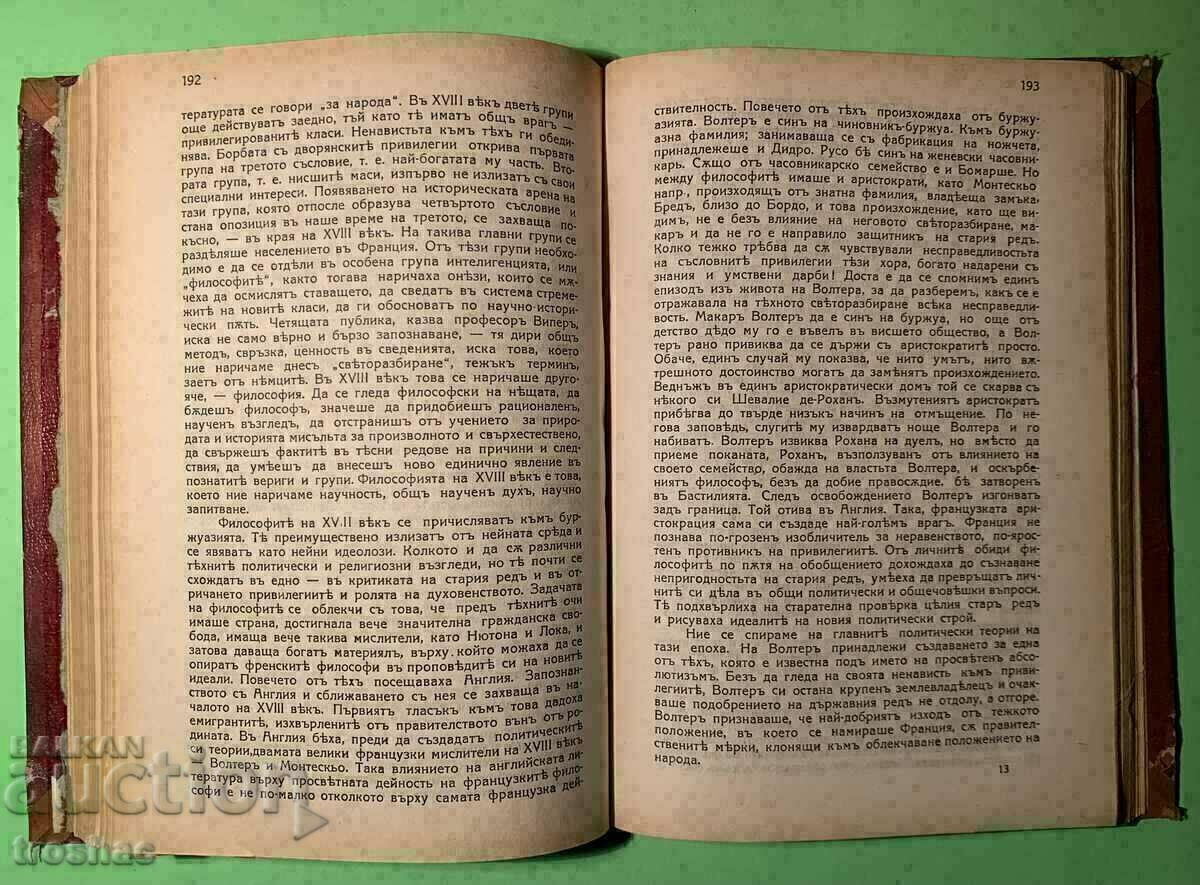 192
тературата се говори „за народа“. Въ XVIII вѣкъ дветѣ групи
още действуватъ заедно, тъй като тѣ иматъ общъ врагъ —
привилегированитѣ класи. Ненавистьта къмъ тѣхъ ги обеди-
нява. Борбата съ дворянскитѣ привилегии открива първата
група на третото съсловие, т. е. най-богатата му часть. Вто-
рата група, т. е. нисшитѣ маси, изпърво не излизатъ съ свои
специални интереси. Появяването на историческата арена на
тази група, която отпосле образува четвъртото съсловие и
стана опозиция въ наше време на третото, се захваща по-
късно, — въ края на XVIII вѣкъ. На такива главни групи се
раздѣляше населението въ Франция. Отъ тѣзи групи необхо-
димо е да се отдѣли въ особена група интелигенцията, или
„философитѣ“, както тогава наричаха онѣзи, които се мѫ-
чеха да осмислятъ ставащето, да сведатъ въ система стреме-
житѣ на новитѣ класи, да ги обосноватъ по научно-истори-
чески пѫть. Четящата публика, казва професоръ Виперъ,
иска не само вѣрно и бързо запознаване, — тя дири общъ
методъ, свръзка, ценность въ сведенията, иска това, което
ние наричаме днесъ „свѣторазбиране“, тежъкъ терминъ,
заетъ отъ нѣмцитѣ. Въ XVIII вѣкъ това се наричаше друго-
яче, — философия. Да се гледа философски на нѣщата, да
бѫдешъ философъ, значеше да придобиешъ рационаленъ,
наученъ възгледъ, да отстранишъ отъ учението за приро-
дата и историята мисъльта за произволното и свърхестествено,
да свържешъ фактитѣ въ тѣсни редове на причини и след-
ствия, да умѣешъ да внесешъ ново единично явление въ
познатитѣ вериги и групи. Философията на XVIII вѣкъ е това,
което ние наричаме научность, общъ наученъ духъ, научно
запитване.
Философитѣ на XVIII вѣкъ се причисляватъ къмъ бур-
жуазията. Тѣ преимуществено излизатъ отъ нейната срѣда и
се явяватъ като нейни идеолози. Колкото и да сѫ различни
тѣхнитѣ политически и религиозни възгледи, но тѣ почти се
схождатъ въ едно — въ критиката на стария редъ и въ от-
ричането привилегиитѣ и ролята на духовенството. Задачата
на философитѣ се облекчи съ това, че предъ тѣхнитѣ очи
имаше страна, достигнала вече значителна гражданска сво-
бода, имаща вече такива мислители, като Нютона и Лока, и
затова даваща богатъ материялъ, върху който можаха да се
опиратъ френскитѣ философи въ проповѣдитѣ си на новитѣ
идеали. Повечето отъ тѣхъ посещаваха Англия. Запознан-
ството съ Англия и сближаването съ нея се захваща въ на-
чалото на XVIII вѣкъ. Първиятъ тласъкъ къмъ това дадоха
емигрантитѣ, изхвърленитѣ отъ правителството вънъ отъ ро-
дината. Въ Англия бѣха, преди да създадатъ политическитѣ
си теории,двамата велики французки мислители на XVIII вѣкъ
— Волтеръ и Монтескьо. Така влиянието на английската ли-
тература върху просвѣтната дейность на французкитѣ фило-
софи е не по-малко отколкото върху самата французка дей-
193
ствителность. Повечето отъ тѣхъ произхождаха отъ буржу-
азията. Волтеръ е синъ на чиновникъ-буржуа. Къмъ буржу-
азна фамилия; занимаваща се съ фабрикация на ножчета,
принадлежеше и Дидро. Русо бѣ синъ на женевски часовни-
карь. Сѫщо отъ часовникарско семейство е и Бомарше. Но
между философитѣ имаше и аристократи, като Монтескьо
напр., произходящъ отъ знатна фамилия, владѣеща замъка,
Бредъ, близо до Бордо, и това произхождение, като ще ви-
димъ, не е безъ влияние на неговото свѣторазбиране, ма-
каръ и да не го е направило защитникъ на стария редъ.
Колко тежко трѣбва да сѫ чувствували несправедливостьта
на съсловнитѣ привилегии тѣзи хора, богато надарени съ
знания и умствени дарби! Доста е да се спомнимъ единъ
епизодъ изъ живота на Волтера, за да разберемъ, какъ се е
отражавала на тѣхното свѣторазбиране всѣка несправедли-
вость. Макаръ Волтеръ да е синъ на буржуа, но още отъ
детство дѣдо му го е въвелъ въ висшето общество, а Вол-
теръ рано привиква да се държи съ аристократитѣ просто.
Обаче, единъ случай му показва, че нито умътъ, нито вѫ-
трешното достоинство могатъ да замѣнятъ произхождението.
Веднъжъ въ единъ аристократически домъ той се скарва съ
нѣкого си Шевалие де-Роханъ. Възмутениятъ аристократъ
прибѣгва до твърде низъкъ начинъ на отмъщение. По не-
гова заповѣдь, слугитѣ му извардватъ ноще Волтера и го
набиватъ. Волтеръ извиква Рохана на дуелъ, но вмѣсто да
приеме поканата, Роханъ, възползуванъ отъ влиянието на
своето семейство, обажда на властьта Волтера, и оскърбе-
ниятъ философъ, безъ да добие правосѫдие. бѣ затворенъ
въ Бастилията. Следъ освобождението Волтеръ изгонватъ
задъ граница. Той отива въ Англия. Така, французката ари-
стокрация сама си създаде най-голѣмъ врагъ. Франция не
познава по-грозенъ изобличитель за неравенството, по-ярос-
тенъ противникъ на привилегиитѣ. Отъ личнитѣ обиди фи-
лософитѣ по пѫтя на обобщението дохождаха до съзнаване
непригодностьта на стария редъ, умѣеха да превръщатъ лич-
нитѣ си дѣла въ общи политически и общечовѣшки въпроси.
Тѣ подхвърлиха на старателна провѣрка цѣлия старъ редъ
и рисуваха идеалитѣ на новия политически строй.
Ние се спираме на главнитѣ политически теории на
тази епоха. На Волтеръ принадлежи създаването за една
отъ тѣхъ, която е известна подъ името на просвѣтенъ абсо-
лютизъмъ. Безъ да гледа на своята ненависть къмъ приви-
легиитѣ, Волтеръ си остана крупенъ землевладѣлецъ и очак-
ваше подобрението на държавния редъ не отдолу, а отгоре.
Волтеръ признаваше, че най-добриятъ изходъ отъ тежкото
положение, въ което се намираше Франция, сѫ правител-
ственитѣ мѣрки, клонящи къмъ облекчаване положението на
народа.
13
BALKAN
auction
troshac